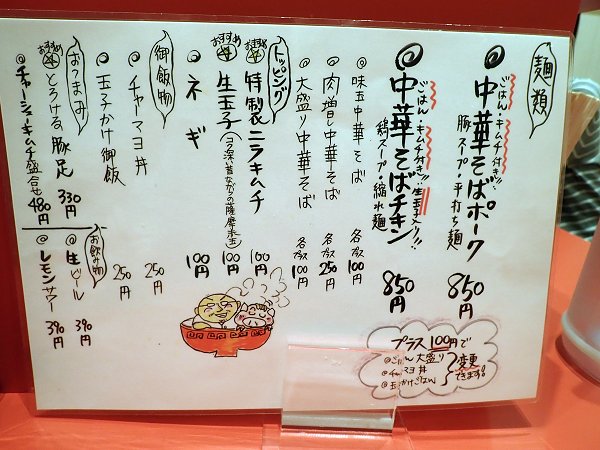 麺類
ごはん・キムチ付き!!
◎中華そばポーク 850円
豚スープ・平打ち麺
ごはん・キムチ付き!!生玉子入り!!
◎中華そばチキン 850円
鶏スープ・縮れ麺
◦味玉中華そば 各プラス100円
◦肉増し中華そば 各プラス250円
◦大盛り中華そば 各プラス100円
トッピング
おすすめ
特製ニラキムチ 100円
おすすめ
生玉子(コク深い昔ながらの薩摩赤玉) 100円
◦ネギ 100円
御飯物
◦チャーマヨ丼 250円
◦玉子かけ御飯 250円
おつまみ
おすすめ
とろける豚足 330円
◎チャーシューキムチ盛合せ 480円
お飲み物
◎生ビール 390円
◎レモンサワー 390円
プラス100円で
◎ごはん大盛り
◎チャーマヨ丼
◎玉子かけごはん
変更できます!